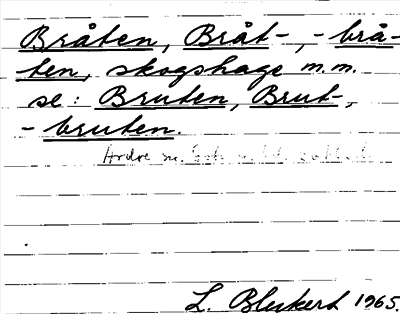 Bråten, Bråt-, -brå-
ten, skogshage m.m.
se: Bruten, Brut-,
-bruten.
L. Blukert 1965.